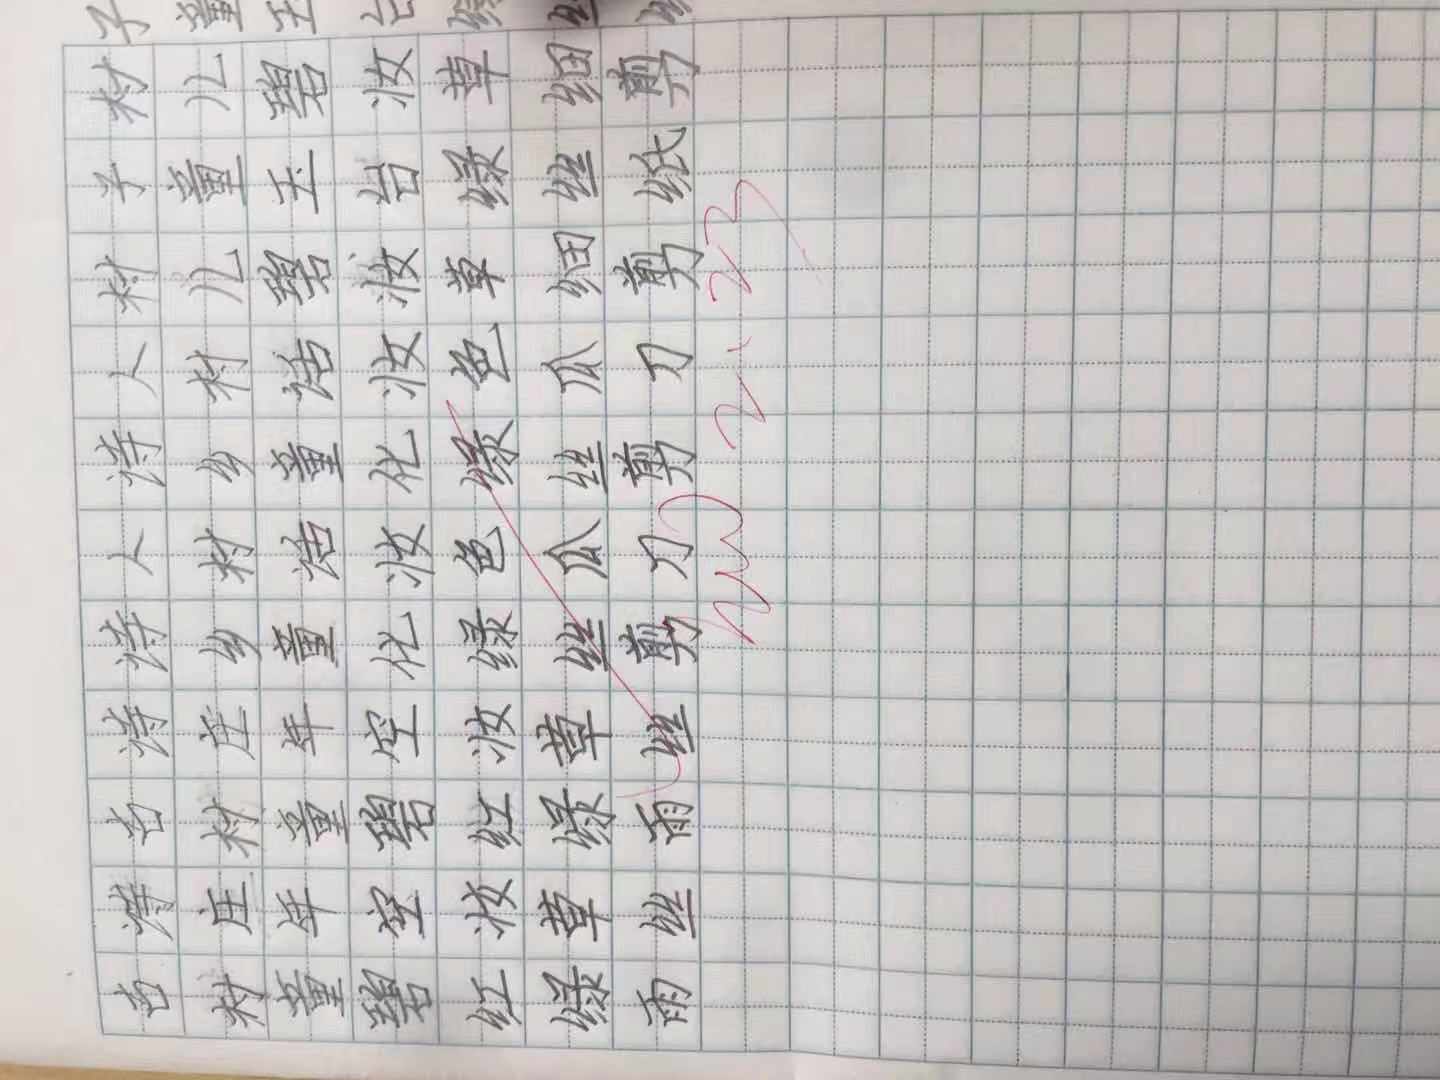 古诗古诗诗人诗人村子村子
村庄村庄乡村乡村儿童儿童
童年童年童话童话碧玉碧玉
碧空碧空化妆化妆妆台妆台
红妆红妆绿色绿色草绿草绿
绿草绿草丝瓜丝瓜细丝细丝
雨丝雨丝剪刀剪刀剪纸剪